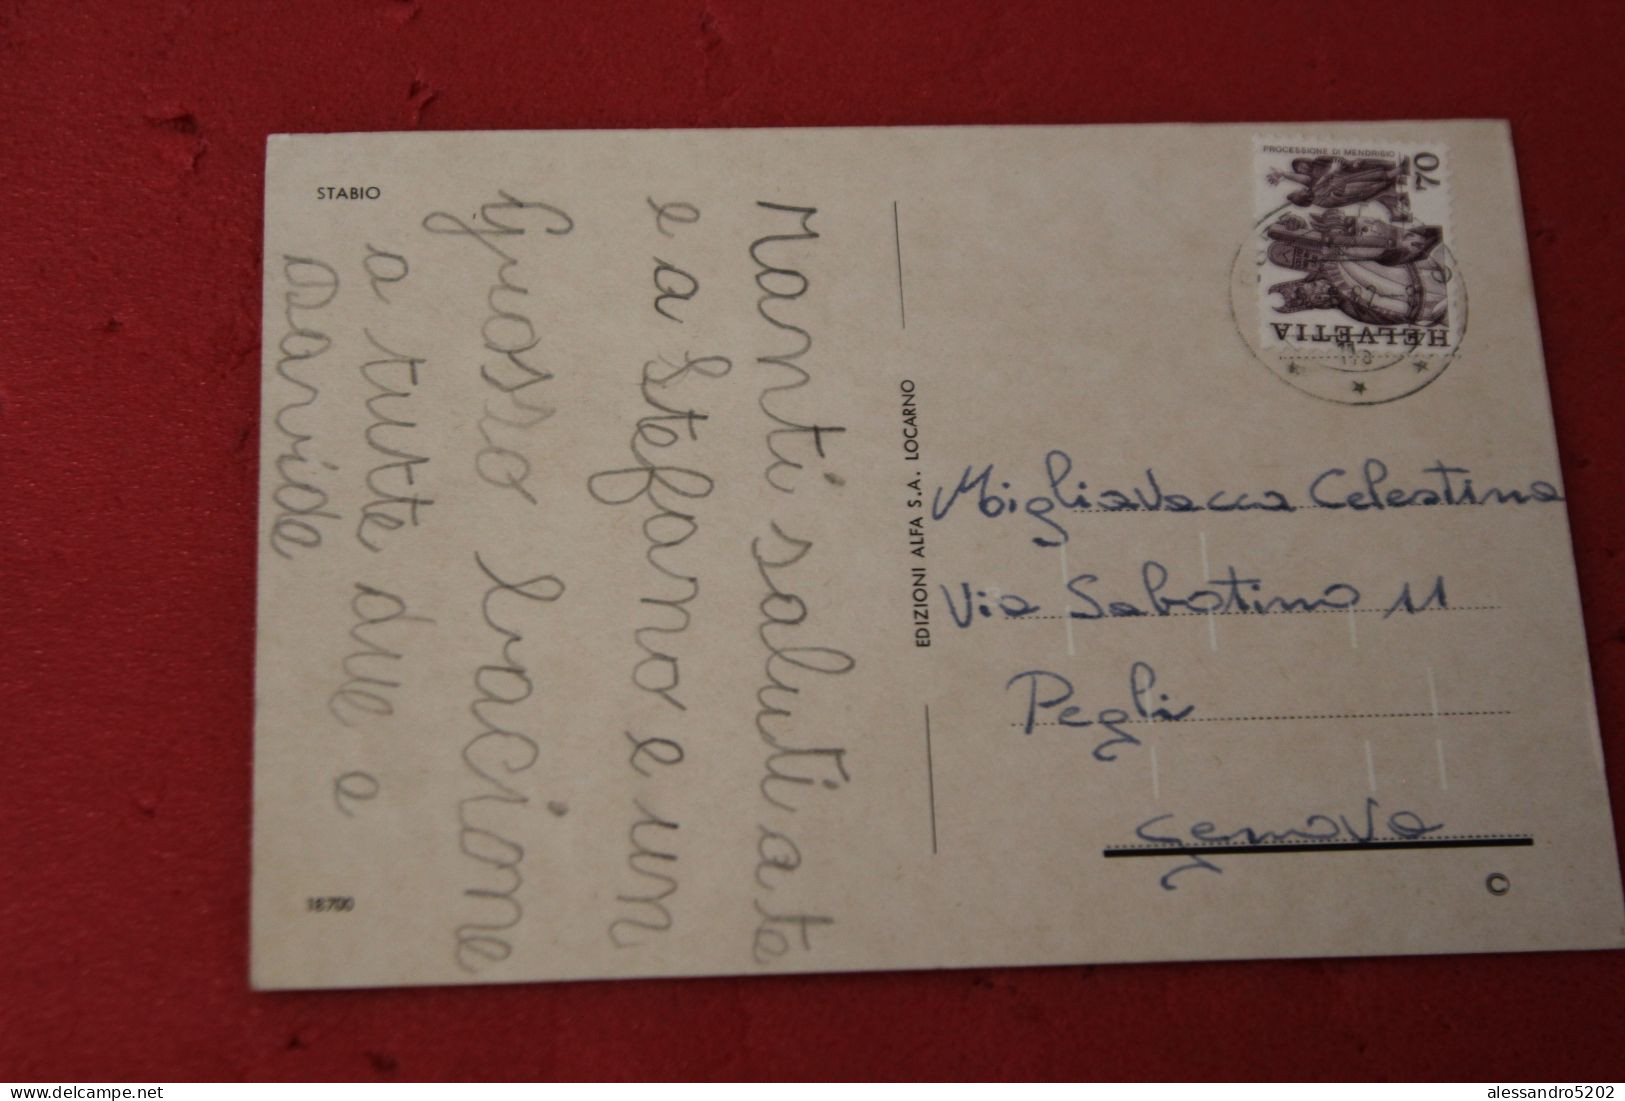 STABIO
Manti saluti a te
e a Stefano e un
Grosso bacione
a tutte due a
Davide
18.700
EDIZIONI ALFA S.A. LOCARNO
PROCESSIONE DI MENDRISIO
70
HELVETIA
Migliavacca Celestina
Via Sabotino 11
Pegli
Genova
©
alessandro5202